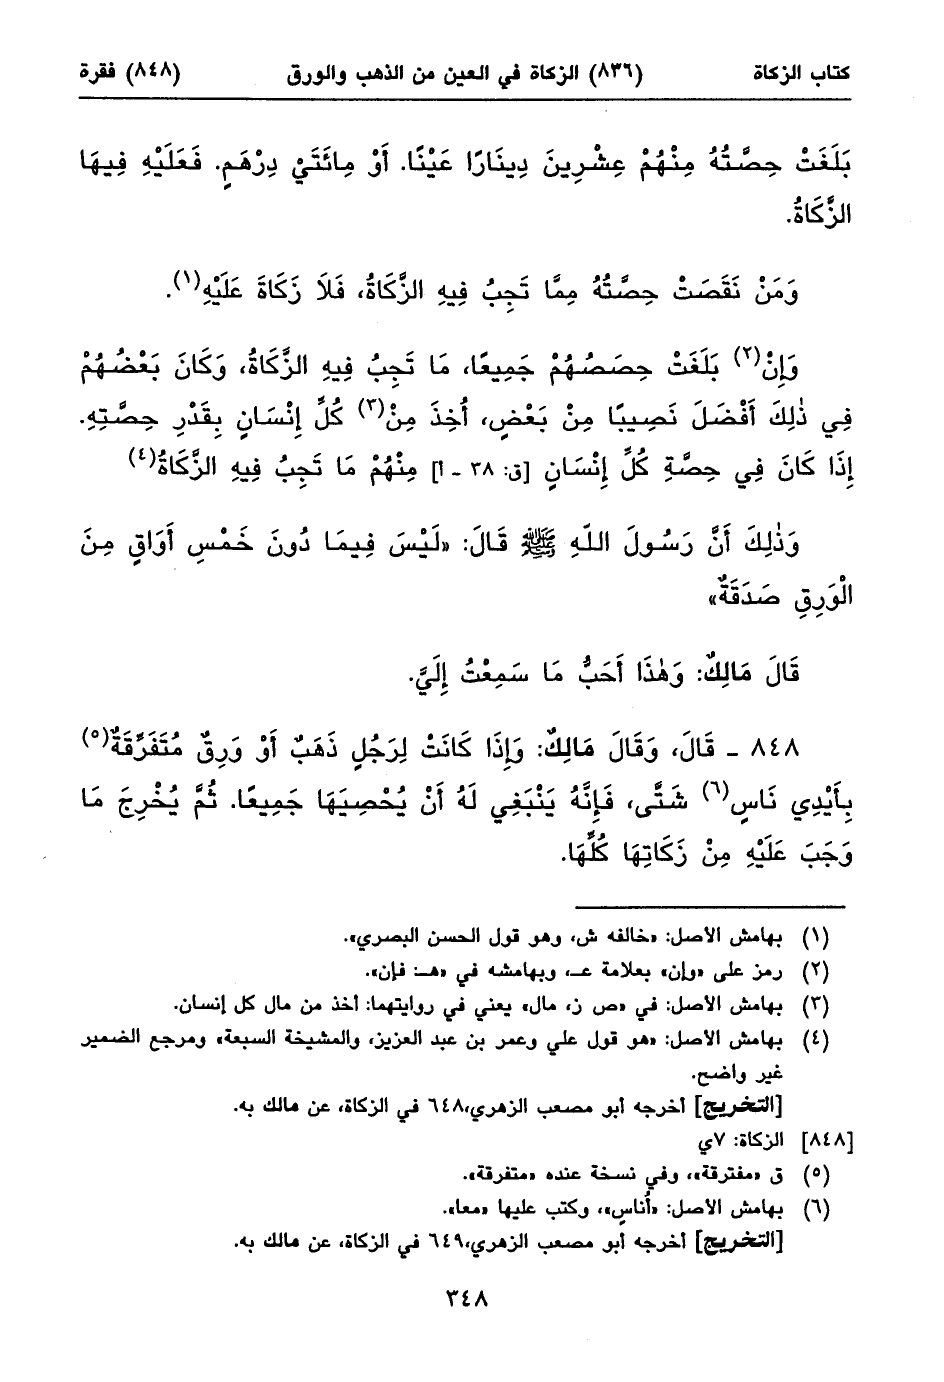 كتاب الزكاة (٨٣٦) الزكاة في العين من الذهب والورق (٨٤٨) فقرة
بَلَغَتْ حِصَّتُهُ مِنْهُمْ عِشْرِينَ دِينَارًا عَيْنًا. أَوْ مِائَتَيْ دِرْهَمٍ. فَعَلَيْهِ فِيهَا
الزَّكَاةُ.
وَمَنْ نَقَصَتْ حِصَّتُهُ مِمَّا تَجِبُ فِيهِ الزَّكَاةُ، فَلَا زَكَاةَ عَلَيْهِ(١).
وَإِنْ(٢) بَلَغَتْ حِصَصُهُمْ جَمِيعًا، مَا تَجِبُ فِيهِ الزَّكَاةُ، وَكَانَ بَعْضُهُمْ
فِي ذٰلِكَ أَفْضَلَ نَصِيبًا مِنْ بَعْضٍ، أُخِذَ مِنْ(٣) كُلِّ إِنْسَانٍ بِقَدْرِ حِصَّتِهِ.
إِذَا كَانَ فِي حِصَّةِ كُلِّ إِنْسَانٍ [ق: ٣٨ - أ] مِنْهُمْ مَا تَجِبُ فِيهِ الزَّكَاةُ(٤)
وَذٰلِكَ أَنَّ رَسُولَ اللّهِ ﷺ قَالَ: «لَيْسَ فِيمَا دُونَ خَمْسِ أَوَاقٍ مِنَ
الْوَرِقِ صَدَقَةٌ»
قَالَ مَالِكٌ: وَهٰذَا أَحَبُّ مَا سَمِعْتُ إِلَيَّ.
٨٤٨ - قَالَ، وَقَالَ مَالِكٌ: وَإِذَا كَانَتْ لِرَجُلٍ ذَهَبٌ أَوْ وَرِقٌ مُتَفَرِّقَةٌ(٥)
بِأَيْدِي نَاسٍ(٦) شَتَّى، فَإِنَّهُ يَنْبَغِي لَهُ أَنْ يُحْصِيَهَا جَمِيعًا. ثُمَّ يُخْرِجَ مَا
وَجَبَ عَلَيْهِ مِنْ زَكَاتِهَا كُلِّهَا.
(١) بهامش الأصل: «خالفه ش، وهو قول الحسن البصري».
(٢) رمز على «وإن» بعلامة عـ، وبهامشه في «هـ: فإن».
(٣) بهامش الأصل: في «ص ز، مال» يعني في روايتهما: أخذ من مال كل إنسان.
(٤) بهامش الأصل: «هو قول علي وعمر بن عبد العزيز، والمشيخة السبعة» ومرجع الضمير
غير واضح.
[التخريج] أخرجه أبو مصعب الزهري،٦٤٨ في الزكاة، عن مالك به.
[٨٤٨] الزكاة: ٧ي
(٥) ق «مفترقة»، وفي نسخة عنده «متفرقة».
(٦) بهامش الأصل: «أُناسٍ»، وكتب عليها «معا».
[التخريج] أخرجه أبو مصعب الزهري،٦٤٩ في الزكاة، عن مالك به.
٣٤٨